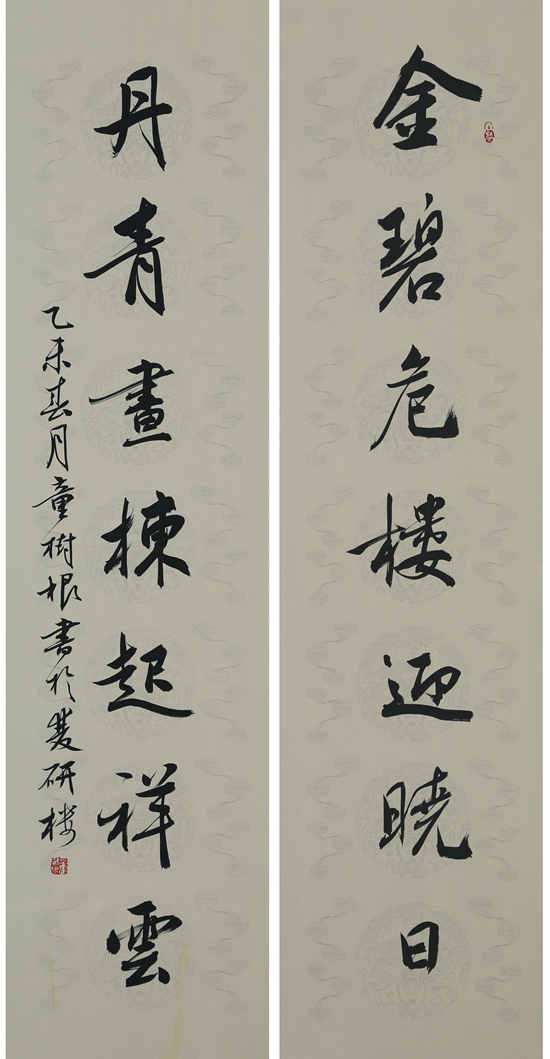 金碧危楼迎曉日
丹青畫棟起祥雲
乙未春月童樹根書於研楼